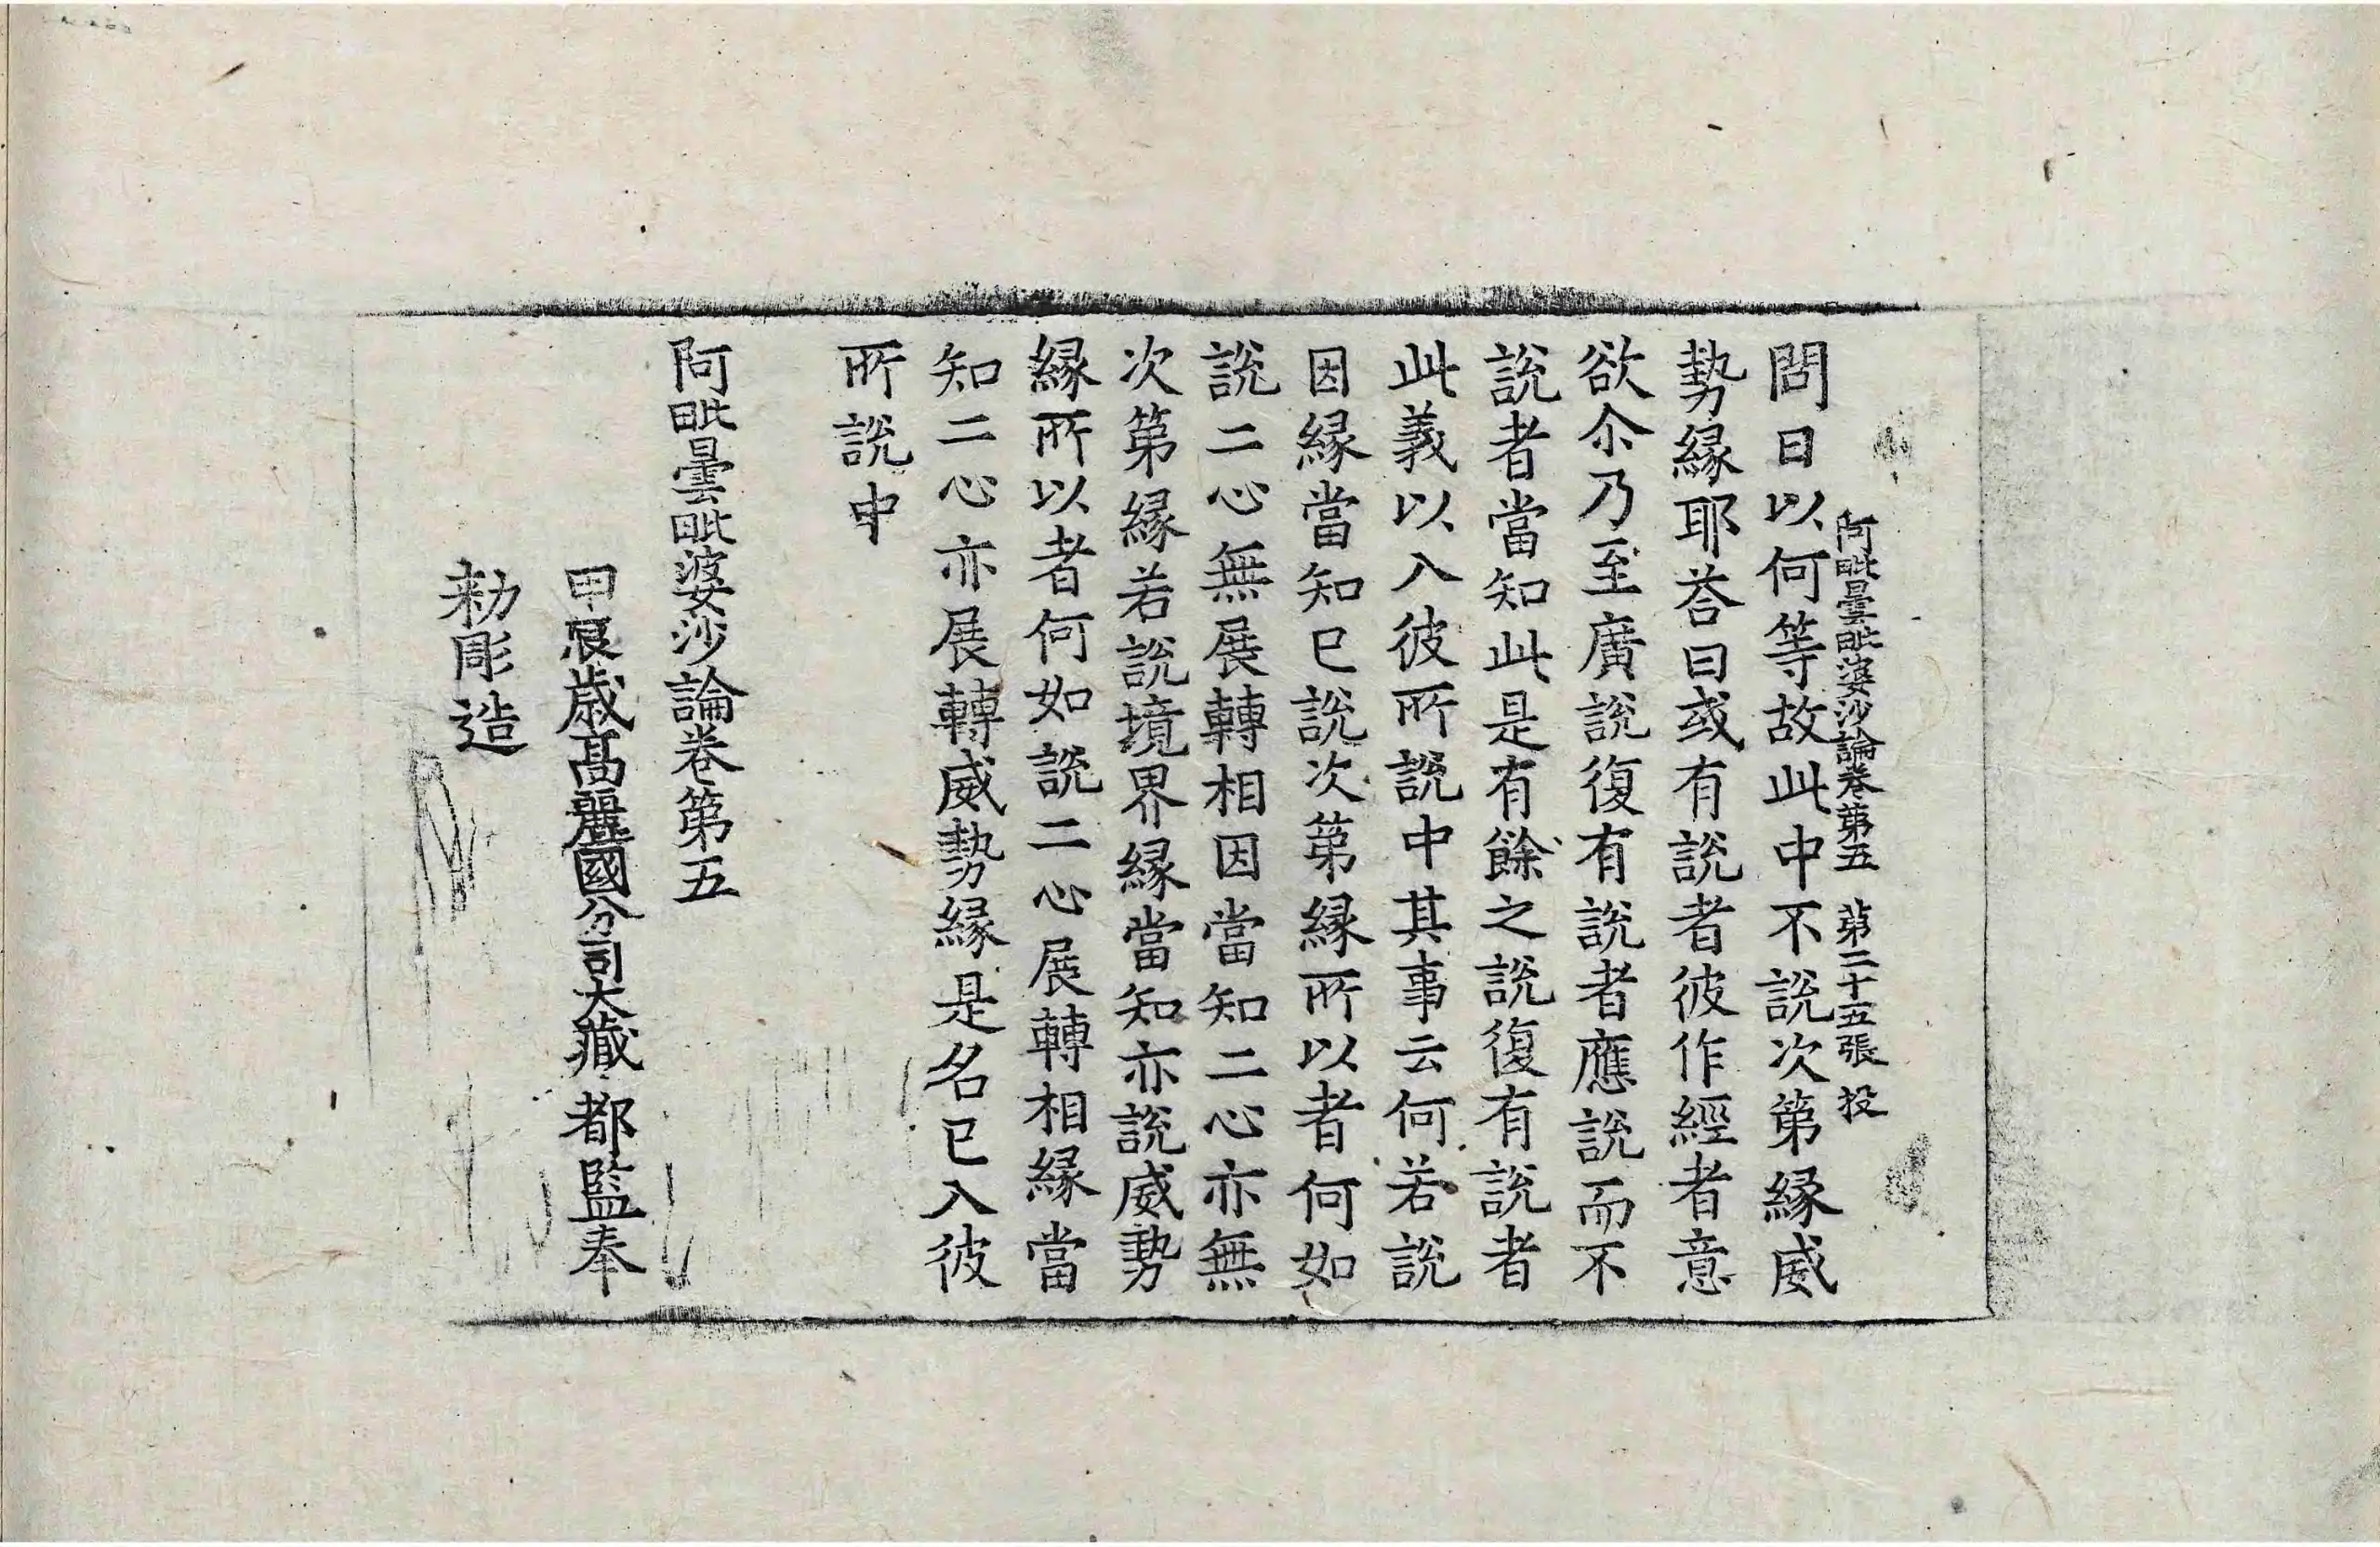 阿毗曇毗婆沙論卷第五　第二十五張　投
問曰以何等故此中不說次第緣威
勢緣耶荅曰或有說者彼作經者意
欲尒乃至廣說復有說者應說而不
說者當知此是有餘之說復有說者
此義以入彼所說中其事云何若說
因緣當知已說次第緣所以者何如
說二心無展轉相因當知二心亦無
次第緣若說境界緣當知亦說威勢
緣所以者何如說二心展轉相緣當
知二心亦展轉威勢緣是名已入彼
所說中
阿毗曇毗婆沙論卷第五
甲辰歲高麗國分司大藏都監奉
勑彫造